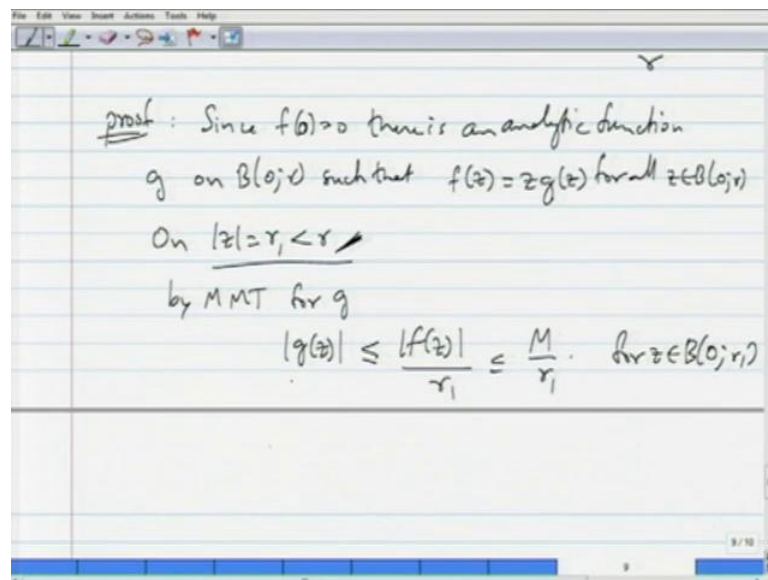 File Edit View Insert Actions Tools Help
r
proof : Since f(0)=0 there is an analytic function
g on B(0;r) such that f(z) = zg(z) for all z∈B(0;r)
On |z|=r₁<r
by MMT for g
|g(z)| ≤ |f(z)|/r₁ ≤ M/r₁. for z∈B(0;r₁)
9/10
9